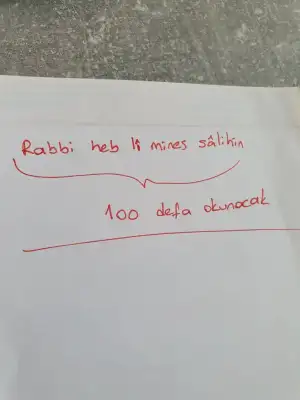 Rabbi heb lî mines sâlihin
100 defa okunacak